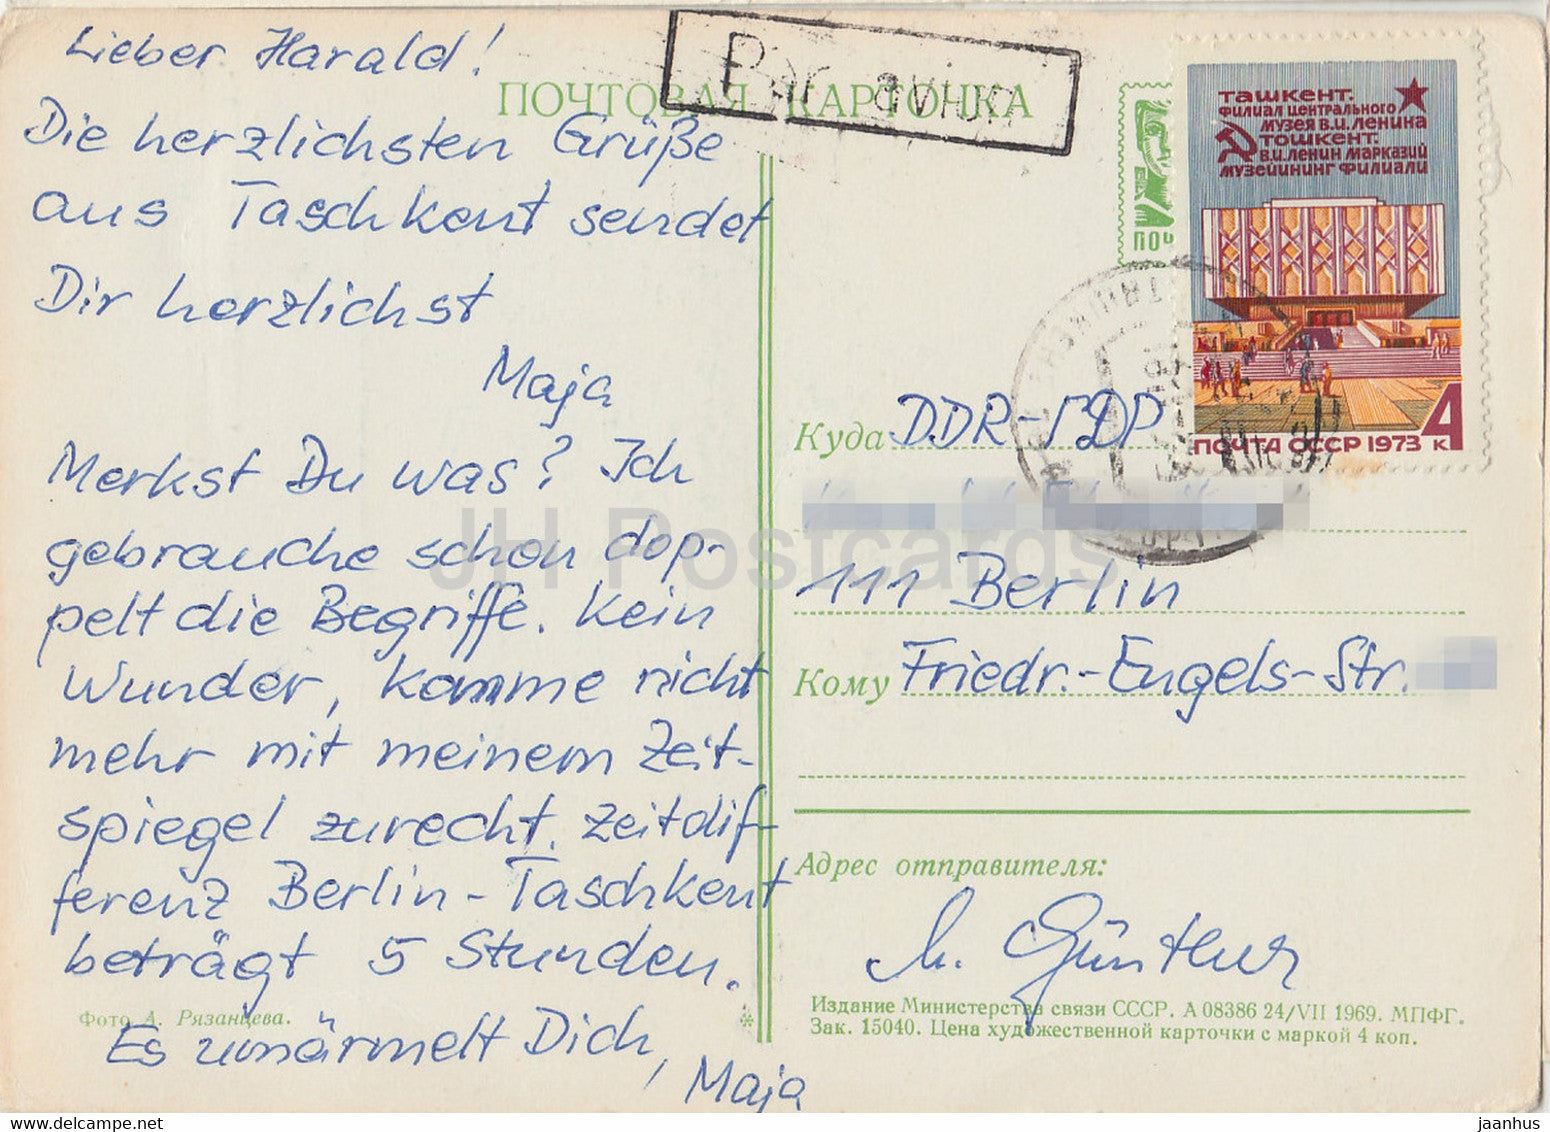 Lieber Harald!
Die herzlichsten Grüße
aus Taschkent sendet
Dir herzlichst
Maja
Merkst Du was? Ich
gebrauche schon dop-
pelt die Begriffe. Kein
Wunder, komme nicht
mehr mit meinem Zeit-
spiegel zurecht. Zeitdif-
ferenz Berlin-Taschkent
beträgt 5 Stunden.
Es umärmelt Dich,
Maja
Фото А. Рязанцева.
ПОЧТОВАЯ КАРТОЧКА
Par avion
ПОЧ
ташкент.
филиал центрального
музея в.и. ленина
тошкент.
в.и. ленин марказий
музейининг филиали
ПОЧТА СССР 1973 4 к.
Куда DDR-ГДР
111 Berlin
Кому Friedr.-Engels-Str.
Адрес отправителя:
M. Günther
Издание Министерства связи СССР. А 08386 24/VII 1969. МПФГ.
Зак. 15040. Цена художественной карточки с маркой 4 коп.
JH Postcards
jaanhus